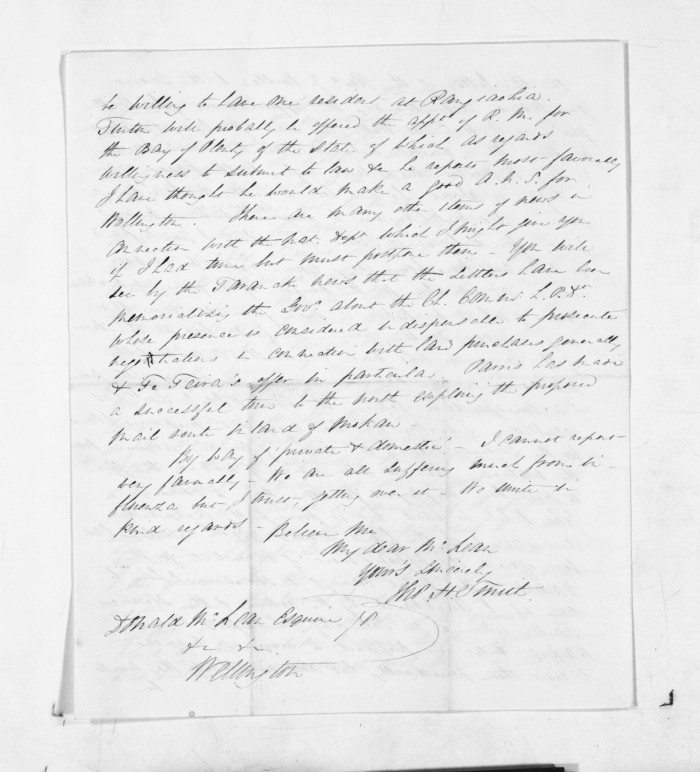 be willing to have one resident at Rangiaohia.
Firth will probably be offered the appt of R. M. for
the Bay of Plenty of the state of which as regards
willingness to submit to law &c he reports most favorably
I have thought he would make a good A. N. S. for
Wellington. There are many other items of news in
connection with the Nat. Dept which I might give you
if I had time but must postpone them - You will
see by the Taranaki news that the Settlers have been
memorializing the Govr about the Ch. Commr L. P. Dt
whose presence is considered indispensable to prosecute
negotiations in connection with land purchases generally
& Te Teira's offer in particular. Parris has made
a successful tour to the north exploring the proposed
mail route inland of Mokau -
By way of 'private & domestic' - I cannot report
very favorably - We are all suffering much from in-
fluenza but, I trust, getting over it - We unite in
kind regards - Believe Me
My dear McLean
Your's sincerely
Tho. H Smith.
Donald McLean Esquire
&c &c
Wellington